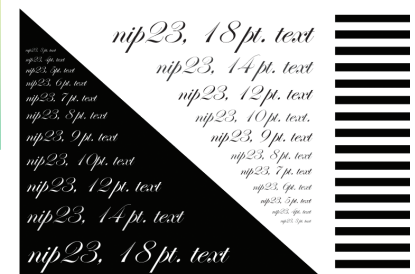 nip23, 18pt. text
nip23, 14pt. text
nip23, 12pt. text
nip23, 10pt.
nip23, 9pt. text
nip23, 8pt. text
nip23, 7pt. text
nip23, 6pt. text
nip23, 5pt. text
nip23, 4pt. text
nip23, 3pt. text
nip23, 3pt. text
nip23, 4pt. text
nip23, 5pt. text
nip23, 6pt. text
nip23, 7pt. text
nip23, 8pt. text
nip23, 9pt. text
nip23, 10pt. text
nip23, 12pt. text
nip23, 14pt. text
nip23, 18pt. text